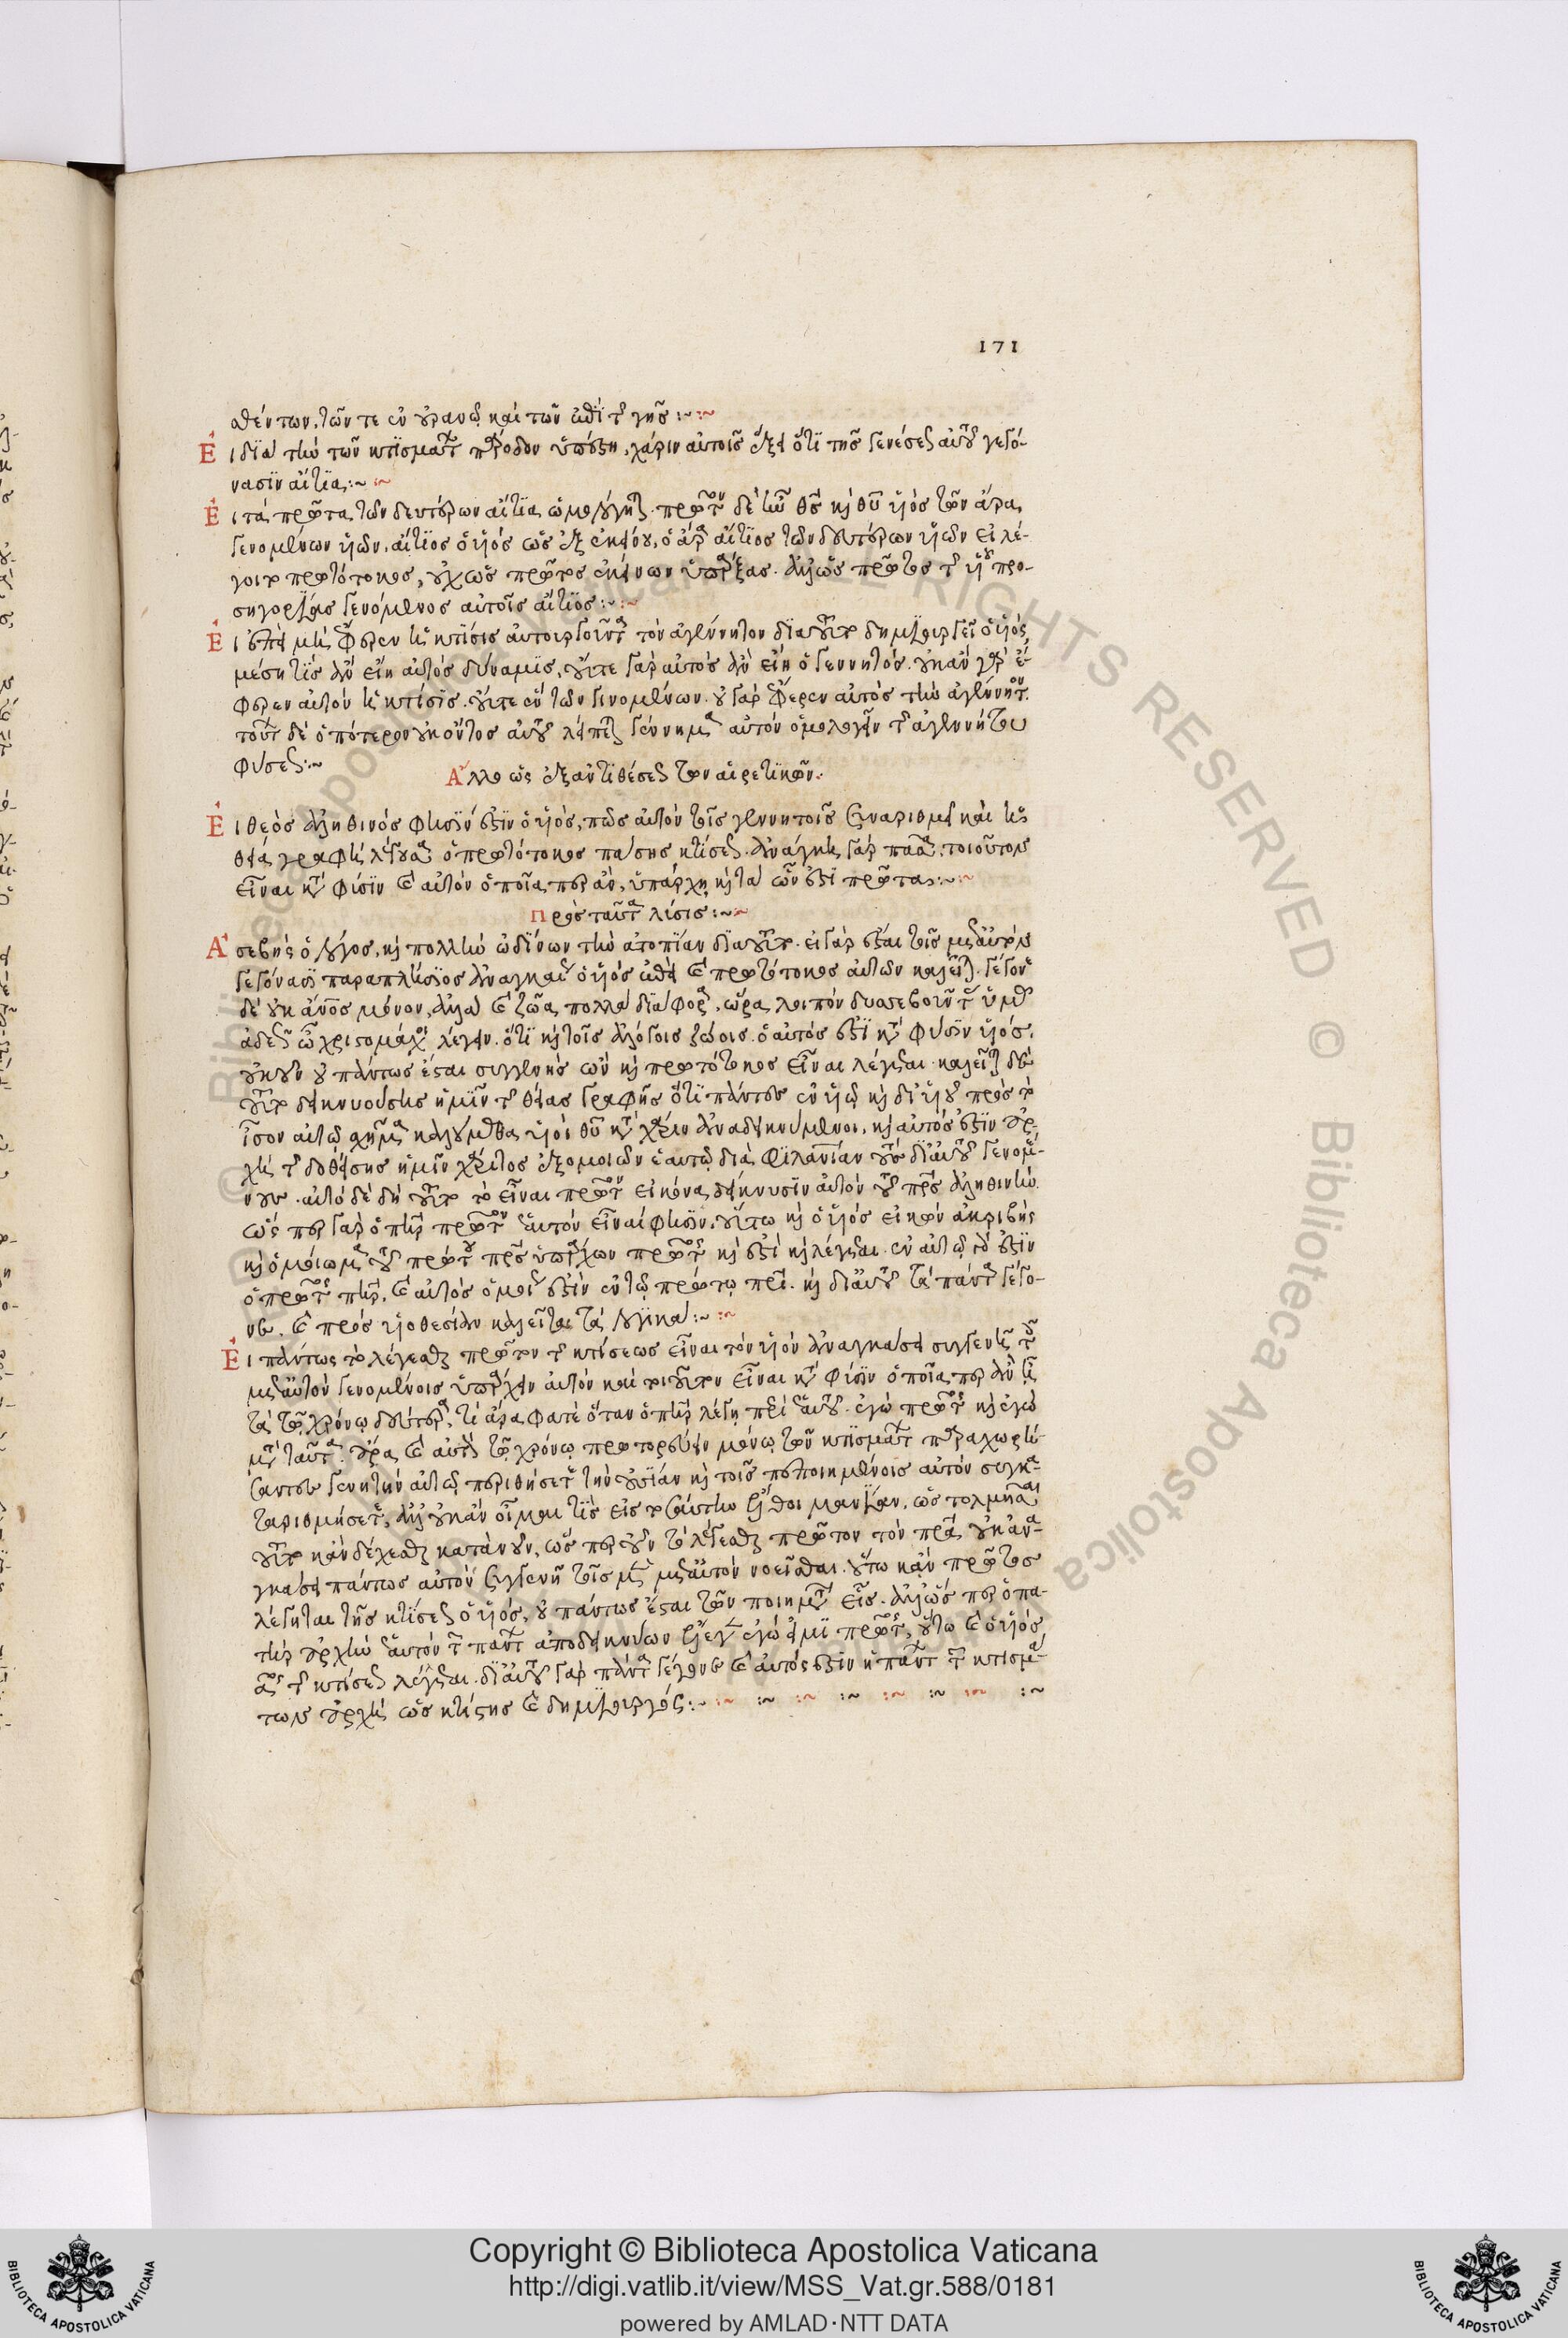 171
θέντων, τῶν τε ἐν οὐρανῷ καὶ τῶν ἐπὶ τῆς γῆς :~ :~
Εἰ διὰ τὴν τῶν κτισμάτων πρόοδον ὑπέστη, χάριν αὐτοῖς ἕξει ὅτι τῆς γενέσεως αὐτοῦ γεγό-
νασιν αἰτία :~ :~
Εἰ τὰ πρῶτα τῶν δευτέρων αἴτια ὡμολόγηται πρῶτον δὲ τῶν θεὸς καὶ θεοῦ υἱὸς τῶν ἄρα
γενομένων υἱῶν, αἴτιος ὁ υἱὸς ὡς ἐξ ἐκείνου, ὁ ἄρα αἴτιος τῶν δευτέρων υἱῶν εἰ λέ-
γοιτο πρωτότοκος, οὐχ ὡς πρῶτος ἐκείνων ὑπάρξας. ἀλλ' ὡς πρῶτος τῆς υἱοῦ προ-
σηγορίας γενόμενος αὐτοῖς αἴτιος :~ :~
Εἰ ἐπεὶ μὴ ἔφερεν ἡ κτίσις αὐτουργοῦντα τὸν ἀγέννητον διὰ τοῦτο δημιουργεῖ ὁ υἱός,
μέση τις ἂν εἴη αὐτὸς δύναμις, οὔτε γὰρ αὐτὸς ἂν εἴη ὁ γεννητός. οὐκ ἂν γὰρ ἔ-
φερεν αὐτὸν ἡ κτίσις. οὔτε ἐν τῶν γινομένων. οὐ γὰρ ἔφερεν αὐτὸς τὴν ἀγέννητον
τούτων δὲ ὁπότερον οὐκ ὄντος αὐτοῦ λείπεται γέννημα αὐτὸν ὁμολογεῖν τῆς ἀγεννήτου
φύσεως :~
Ἄλλο ὡς ἐξ ἀντιθέσεως τῶν αἱρετικῶν.
Εἰ θεὸς ἀληθινὸς φησίν ἐστιν ὁ υἱός, πῶς αὐτὸν τοῖς γεννητοῖς συναριθμεῖ καὶ ἡ
θεία γραφὴ λέγουσα ὁ πρωτότοκος πάσης κτίσεως. ἀνάγκη γὰρ πᾶσα, τοιοῦτον
εἶναι κατὰ φύσιν καὶ αὐτὸν ὁποῖά περ ἂν, ὑπάρχῃ καὶ τὰ ὧν ἐστι πρῶτα :~ :~
Πρὸς ταῦτα λύσις :~ :~
Ἀσεβὴς ὁ λόγος, καὶ πολλὴν ὠδίνων τὴν ἀτοπίαν διὰ τοῦτο. εἰ γὰρ ἔσται τοῖς μετ' αὐτὸν
γεγόνασι παραπλήσιος ἀναγκαίως ὁ υἱὸς ἐπεὶ καὶ πρωτότοκος αὐτῶν καλεῖται. γέγονε
δὲ οὐκ ἄνθρωπος μόνον, ἀλλὰ καὶ ζῶα πολλὰ διάφορα, ὥρα λοιπὸν δυσσεβοῦντας ὑμᾶς
ἀδεῶς ὦ χριστομάχοι λέγειν. ὅτι καὶ τοῖς ἀλόγοις ζώοις. ὁ αὐτός ἐστι κατὰ φύσιν υἱός.
οὐκοῦν οὐ πάντως ἔσται συγγενὴς ὧν καὶ πρωτότοκος εἶναι λέγεται. καλεῖται δὲ
τοῦτο δεικνυούσης ἡμῖν τῆς θείας γραφῆς ὅτι πάντες ἐν υἱῷ καὶ δι' υἱοῦ πρὸς τὸ
ἴσον αὐτῷ σχῆμα καλούμεθα υἱοὶ θεοῦ κατὰ χάριν ἀναδεικνύμενοι, καὶ αὐτός ἐστιν ἀρ-
χὴ τῆς δοθείσης ἡμῖν χάριτος ἐξομοιῶν ἑαυτῷ διὰ φιλανθρωπίαν τοὺς δι' αὐτοῦ γενομέ-
νους. αὐτὸ δὲ δὴ τοῦτο τὸ εἶναι πρῶτον εἰκόνα δείκνυσιν αὐτὸν τοῦ πατρὸς ἀληθινήν.
ὥσπερ γὰρ ὁ πατὴρ πρῶτον ἑαυτὸν εἶναί φησιν, οὕτω καὶ ὁ υἱὸς εἰκὼν ἀκριβὴς
καὶ ὁμοίωμα τοῦ πρώτου πατρὸς ὑπάρχων πρῶτός καὶ ἐστὶ καὶ λέγεται. ἐν αὐτῷ τέ ἐστιν
ὁ πρῶτος πατήρ, καὶ αὐτὸς ὁμοίως ἐστὶν ἐν τῷ πρώτῳ πατρί. καὶ δι' αὐτοῦ τὰ πάντα γέγο-
νε. καὶ πρὸς υἱοθεσίαν καλεῖται τὰ λογικά :~ :~
Εἰ πάντως τὸ λέγεσθαι πρῶτον τῆς κτίσεως εἶναι τὸν υἱὸν ἀναγκάσει συγγενῆ τοῖς
μετ' αὐτὸν γενομένοις ὑπάρχειν αὐτὸν καὶ τοιοῦτον εἶναι κατὰ φύσιν ὁποῖά περ ἂν ᾖ
τὰ τῷ χρόνῳ δεύτερα, τί ἄρα φατὲ ὅταν ὁ πατὴρ λέγῃ περὶ ἑαυτοῦ. ἐγὼ πρῶτος καὶ ἐγὼ
μετὰ ταῦτα. ἆρα καὶ αὐτὸν τῷ χρόνῳ πρωτορεύειν μόνῳ τῶν κτισμάτων παραχωρή-
σαντες γενητὴν αὐτῷ περιθήσετε τὴν οὐσίαν καὶ τοῖς πεποιημένοις αὐτὸν συγκα-
ταριθμήσετε, ἀλλ' οὐκ ἂν οἶμαί τις εἰς τοσαύτην ἔλθοι μανίαν, ὡς τολμῆσαι
τοῦτο κἂν δέχεσθαι κατὰ νοῦν, ὥσπερ οὖν τὸ λέγεσθαι πρῶτον τὸν πατέρα οὐκ ἀνα-
γκάσει πάντως αὐτὸν συγγενῆ τοῖς μετ' αὐτὸν νοεῖσθαι. οὕτω κἂν πρῶτος
λέγηται τῆς κτίσεως ὁ υἱός, οὐ πάντως ἔσται τῶν ποιημάτων εἷς. ἀλλ' ὥσπερ ὁ πα-
τὴρ ἀρχὴν ἑαυτὸν τῶν πάντων ἀποδεικνύων ἔλεγεν ἐγώ εἰμι πρῶτος, οὕτω καὶ ὁ υἱὸς
πρῶτος τῆς κτίσεως λέγεται. δι' αὐτοῦ γὰρ πάντα γέγονε καὶ αὐτός ἐστιν ἡ πάντων τῶν κτισμά-
των ἀρχὴ ὡς κτίστης καὶ δημιουργός :~ :~ :~ :~ :~ :~ :~ :~ :~
Copyright © Biblioteca Apostolica Vaticana
http://digi.vatlib.it/view/MSS_Vat.gr.588/0181
powered by AMLAD·NTT DATA